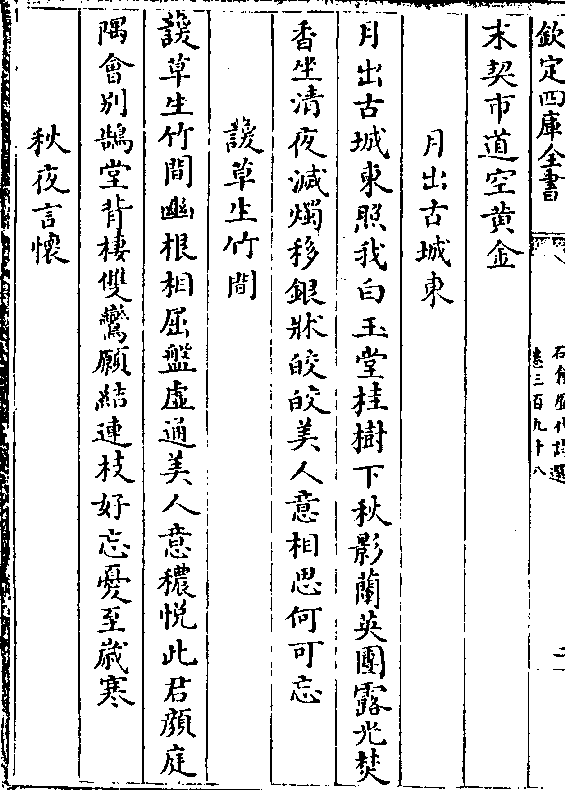 欽定四庫全書
石倉歴代詩選
卷三百九十八
二
末契市道空黄金
月出古城東
月出古城東照我白玉堂桂樹下秋影蘭英團露光焚
香坐清夜滅燭移銀牀皎皎美人意相思何可忘
諼草生竹間
諼草生竹間幽根相屈盤虛通美人意穠悦此君顔庭
隅會別鵠堂背棲雙鸞願結連枝好忘憂至歲寒
秋夜言懷